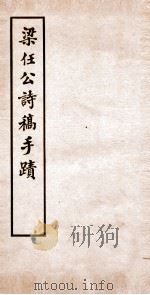 梁任公詩稿手蹟
mtoou.info
mtoou.info